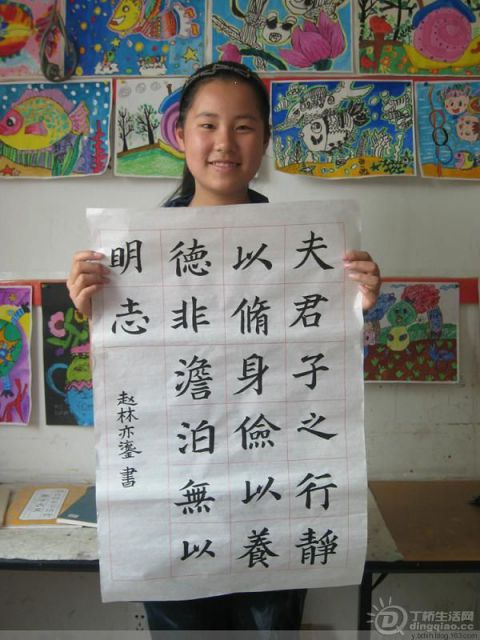 夫君子之行靜
以脩身儉以養
德非澹泊無以
明志
赵林亦鎏書
丁桥生活网
dingqiao.cc
y.bdxin.blog.163.com